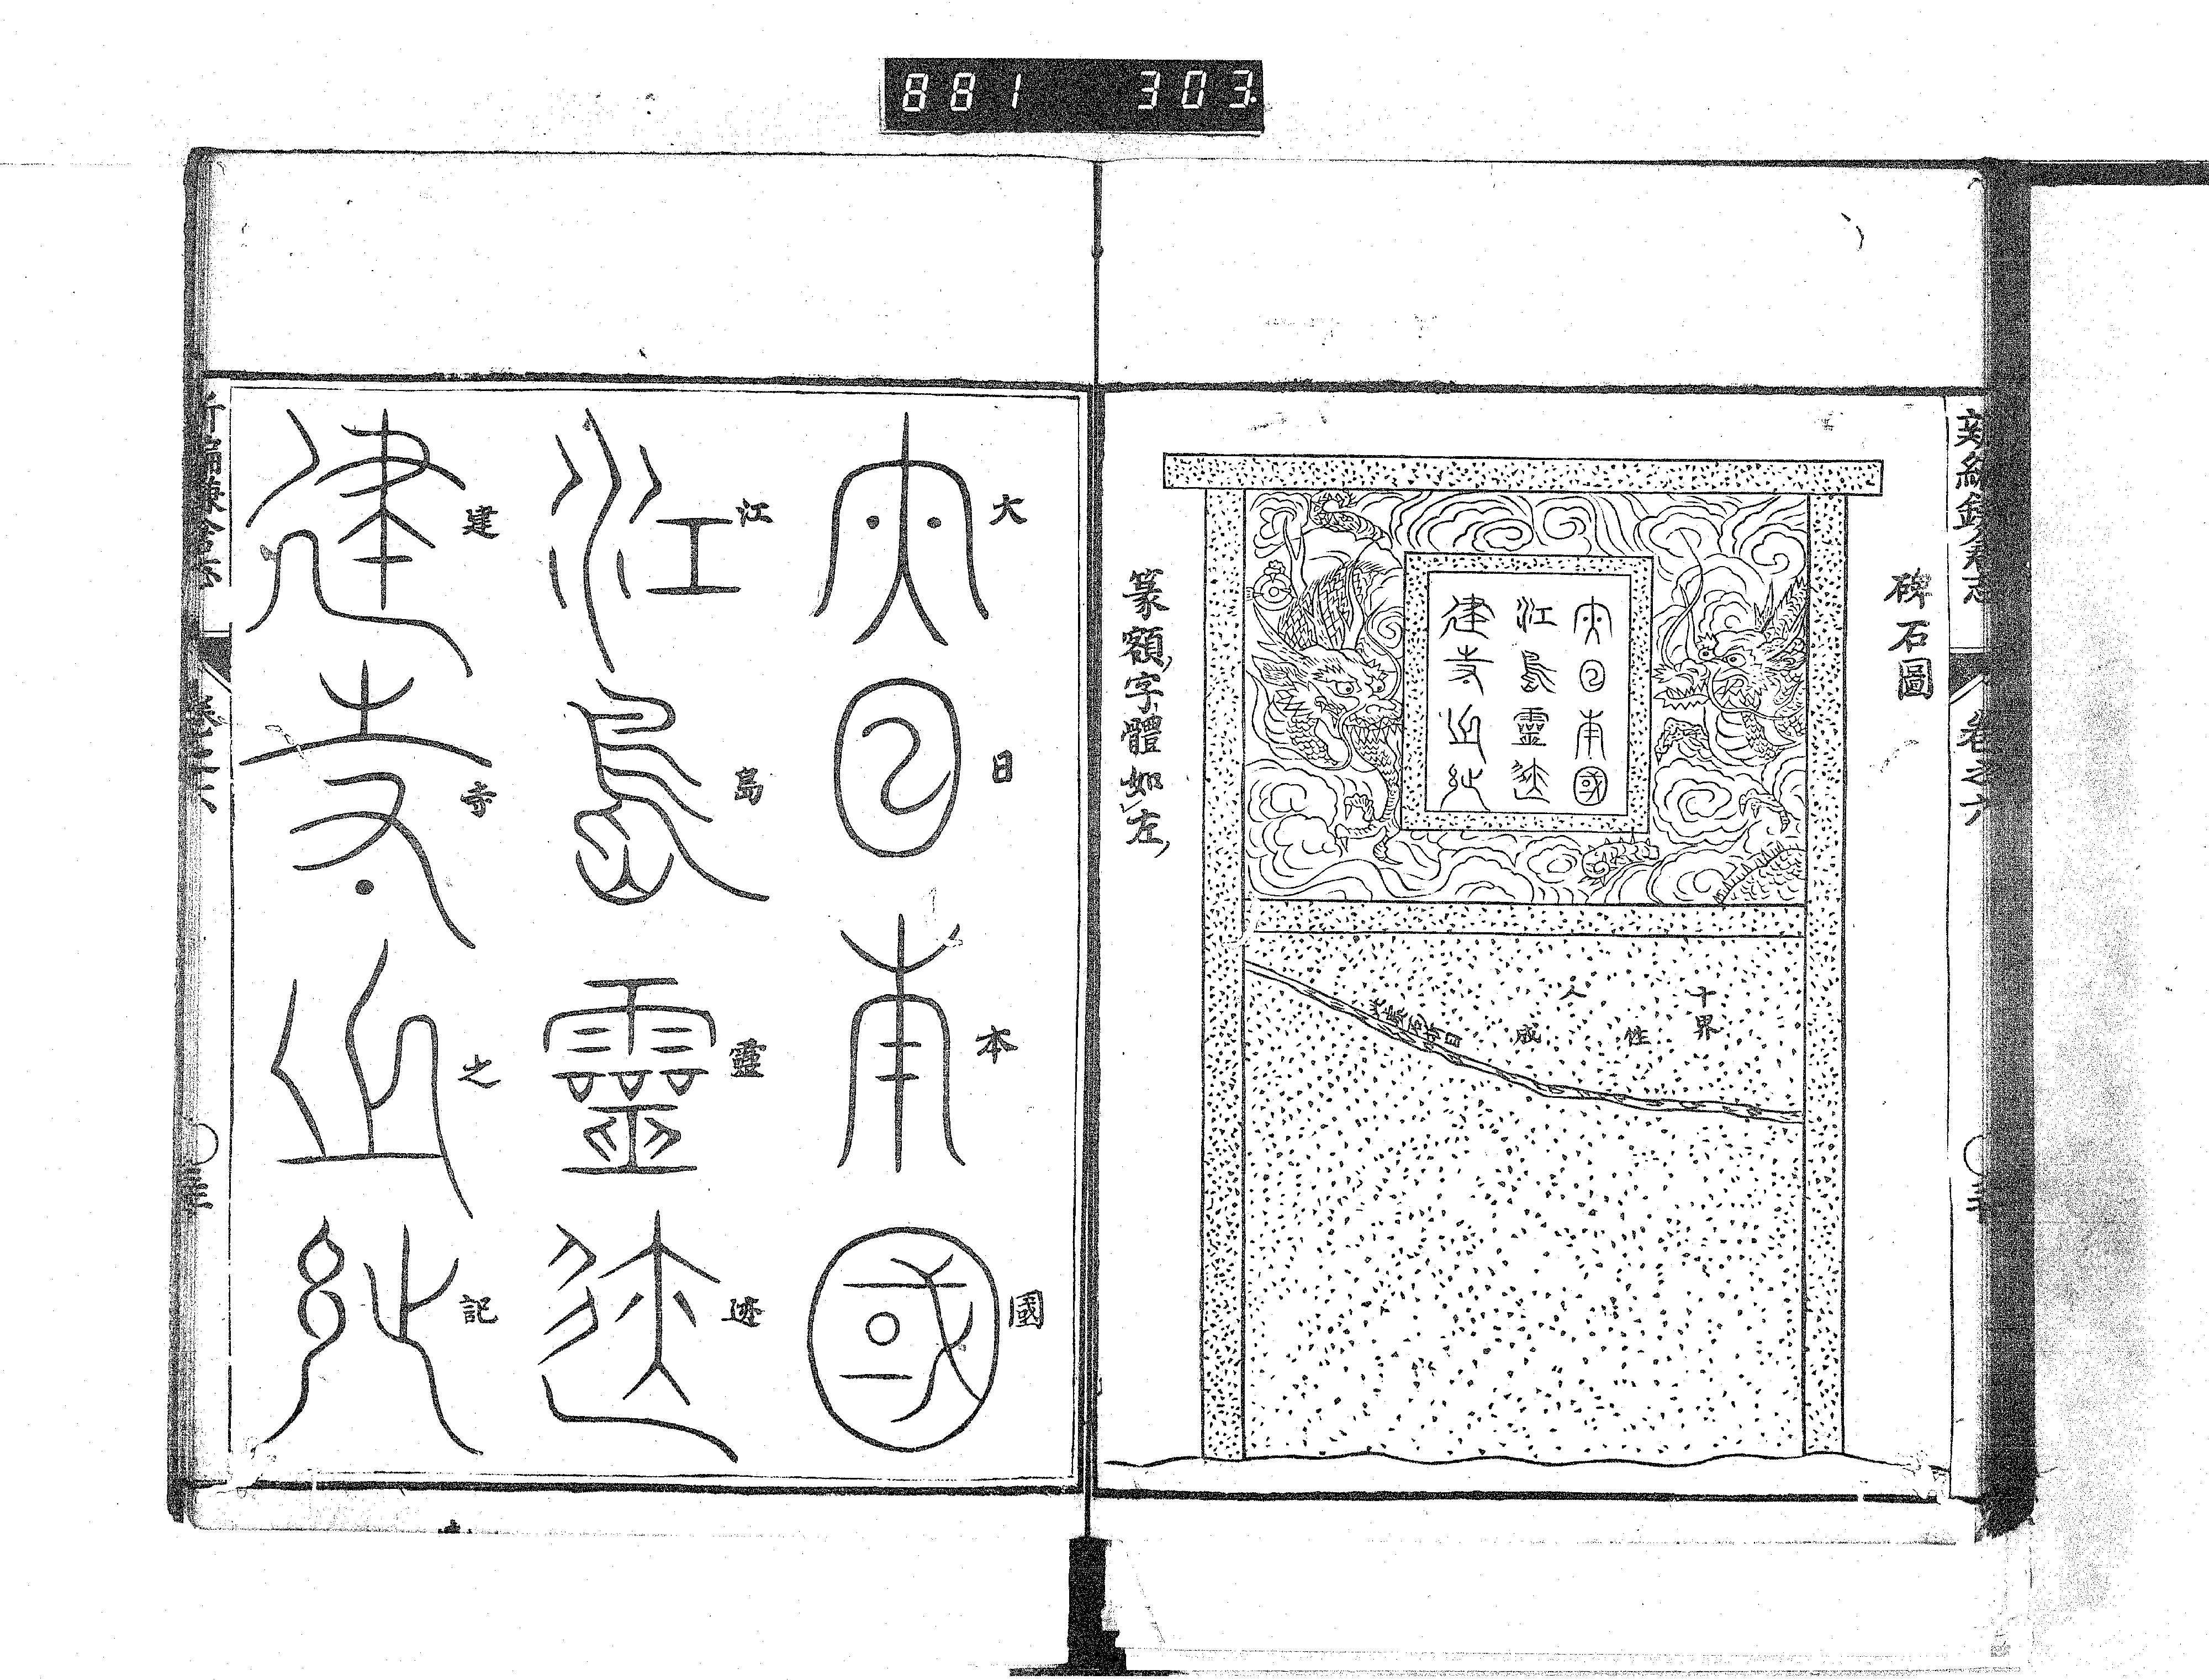 881 303
碑石圖
大日本國
江島靈迹
建寺之記
十界
性
人
成
篆額字體如左
大日本國
大日本國
江島靈迹
江島靈迹
建寺之記
建寺之記
新編鎌倉志
卷之六